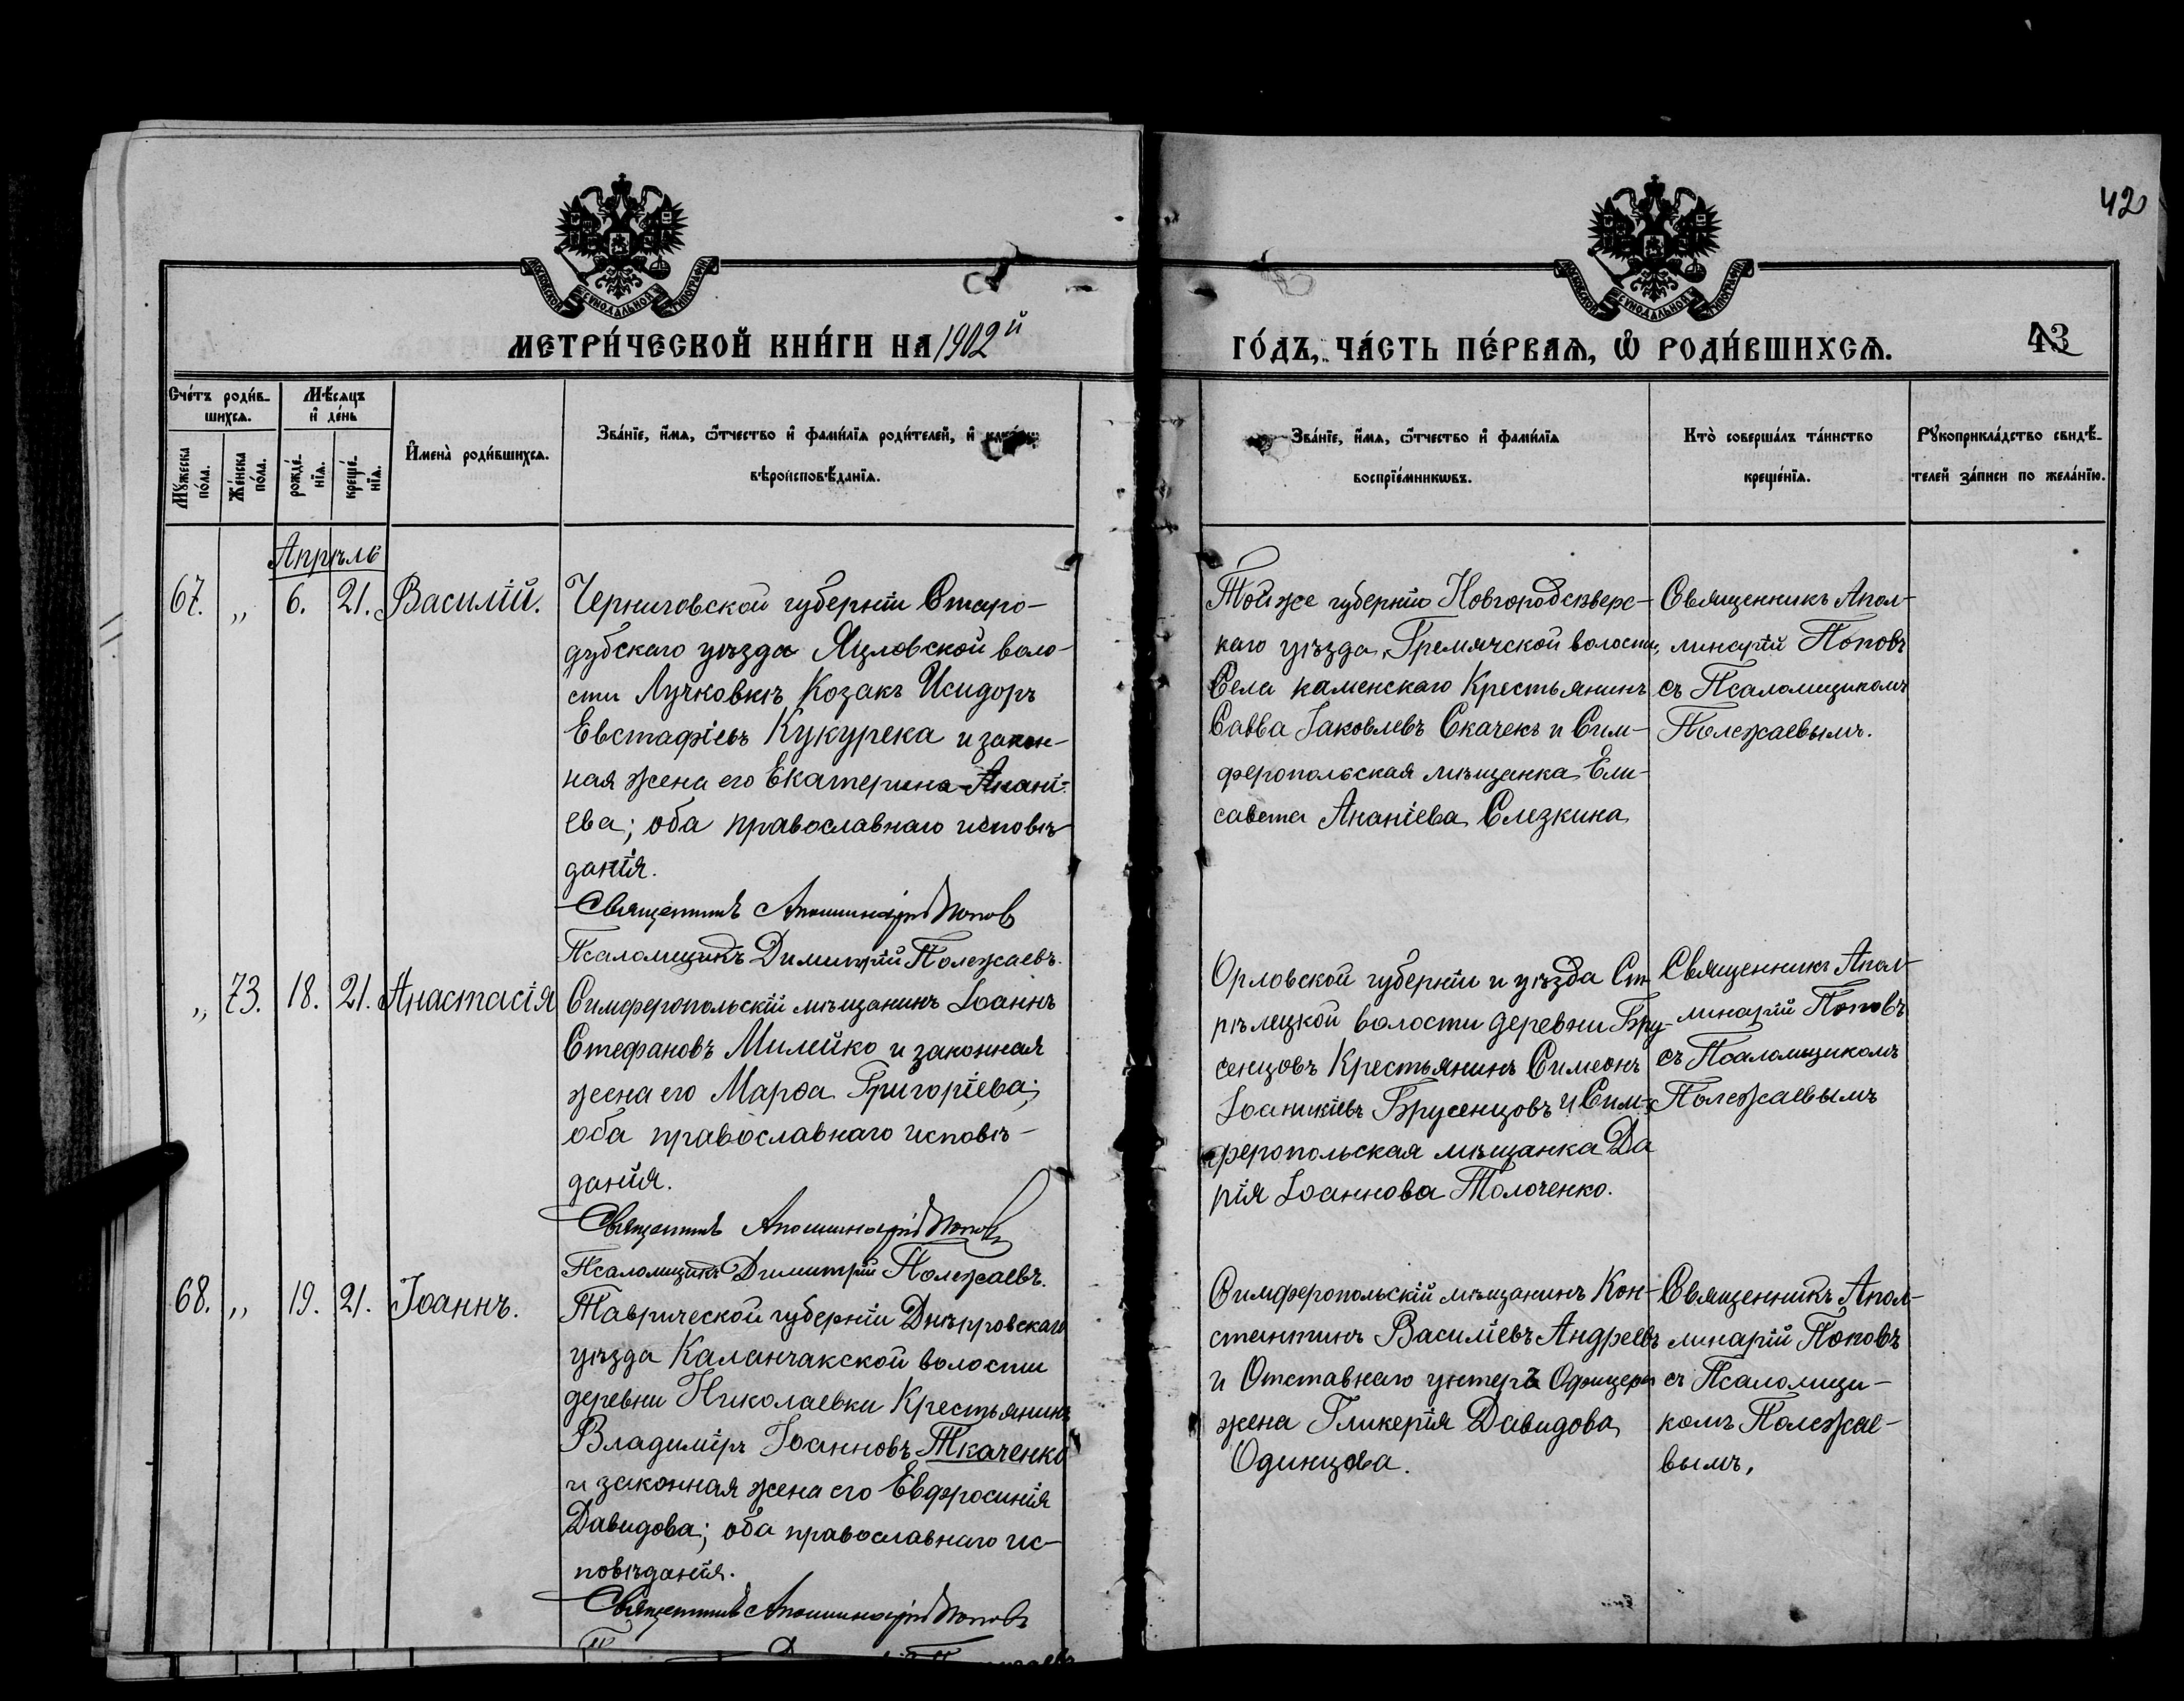 42
МОСКОВСКОЙ СѴНОДАЛЬНОЙ ТИПОГРАФІИ
МОСКОВСКОЙ СѴНОДАЛЬНОЙ ТИПОГРАФІИ
МЕТРИ́ЧЕСКОЙ КНИ́ГИ НА 1902й
ГО́ДЪ, ЧА́СТЬ ПЕ́РВАѦ, Ѡ҆ РОДИ́ВШИХСѦ.
43
Сче́тъ роди́в-
шихсѧ.
Мѣ́сяцъ
и҆ де́нь
Мꙋ́жеска
по́ла.
Же́нска
по́ла.
рожде́-
нїѧ.
креще́-
нїѧ.
И҆мена̀ роди́вшихсѧ.
Зва́нїе, и҆́мѧ, ѻ҆́тчество и҆ фами́лїѧ роди́телей, и҆
вѣроисповѣ́данїѧ.
Зва́нїе, и҆́мѧ, ѻ҆́тчество и҆ фами́лїѧ
воспрїе́мникѡвъ.
Кто̀ соверша́лъ та́инство
креще́нїѧ.
Рꙋкоприкла́дство свидѣ́-
телей за́писи по жела́нїю.
Апрѣль
67. „ 6. 21. Василій.
Черниговской губерніи Старо-
дубскаго уѣзда Яцловской воло-
сти Лучковкѣ Козакъ Исидоръ
Евстафіевъ Кукурека и закон-
ная жена его Екатерина Анані-
ева; оба православнаго исповѣ-
данія.
Священникъ Аполлинарій Попов
Псаломщикъ Димитрій Полежаевъ.
Тойже губерніи Новгородсѣверс-
каго уѣзда, Гремячской волости,
Села каменскаго Крестьянинъ
Савва Іаковлевъ Скачекъ и Сим-
феропольская мѣщанка Ели-
савета Ананіева Слезкина
Священникъ Апол-
линарій Поповъ
съ Псаломщикомъ
Полежаевымъ.
„ 73. 18. 21. Анастасія
Симферопольскій мѣщанинъ Іоаннъ
Стефановъ Милейко и законная
жена его Марѳа Григоріева;
оба православнаго исповѣ-
данія.
Священникъ Аполлинарій Поповъ
Псаломщикъ Димитрій Полежаевъ.
Орловской губерніи и уѣзда Ст
рѣлецкой волости деревни Бру-
сенцовъ Крестьянинъ Симеонъ
Іоаникіевъ Брусенцовъ и Сим-
феропольская мѣщанка Да
рія Іоаннова Толоченко.
Священникъ Апол-
линарій Поповъ
съ Псаломщикомъ
Полежаевымъ
68. „ 19. 21. Іоаннъ.
Таврической губерніи Днѣпровскаго
уѣзда Каланчакской волости
деревни Николаевки Крестьянинъ
Владиміръ Іоанновъ Ткаченко
и законная жена его Евфросинія
Давидова; оба православнаго ис-
повѣданія.
Священникъ Аполлинарій Поповъ
Симферопольскій мѣщанинъ Кон-
стантинъ Василіевъ Андреевъ
и Отставнаго унтеръ Офицера
жена Гликерія Давидова
Одинцова.
Священникъ Апол-
линарій Поповъ
съ Псаломщи-
комъ Полежае-
вымъ,